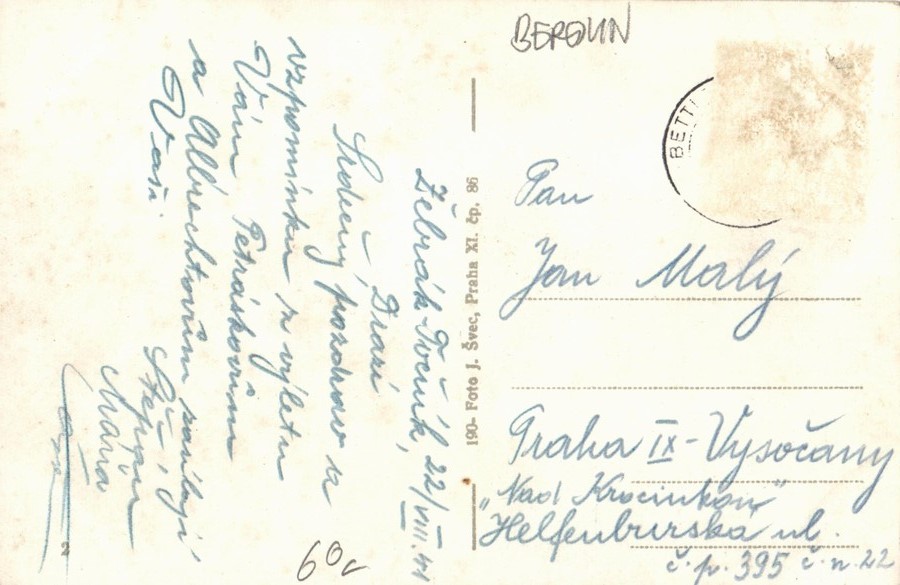 BEROUN
BETTL
Žebrák-Točník, 22/VIII. 41
Drazí,
Srdečný pozdrav a
vzpomínku z výletu
Vám Petráskovim
a Albrechtovim zasílají
Vaši.
Štěpán
Mána
190- Foto J. Švec, Praha XI. čp. 86
Pan
Jan Malý
Praha IX - Vysočany
„Nad Krocínkou"
Helfenburská ul.
č. p. 395 č. n. 22
60c
2